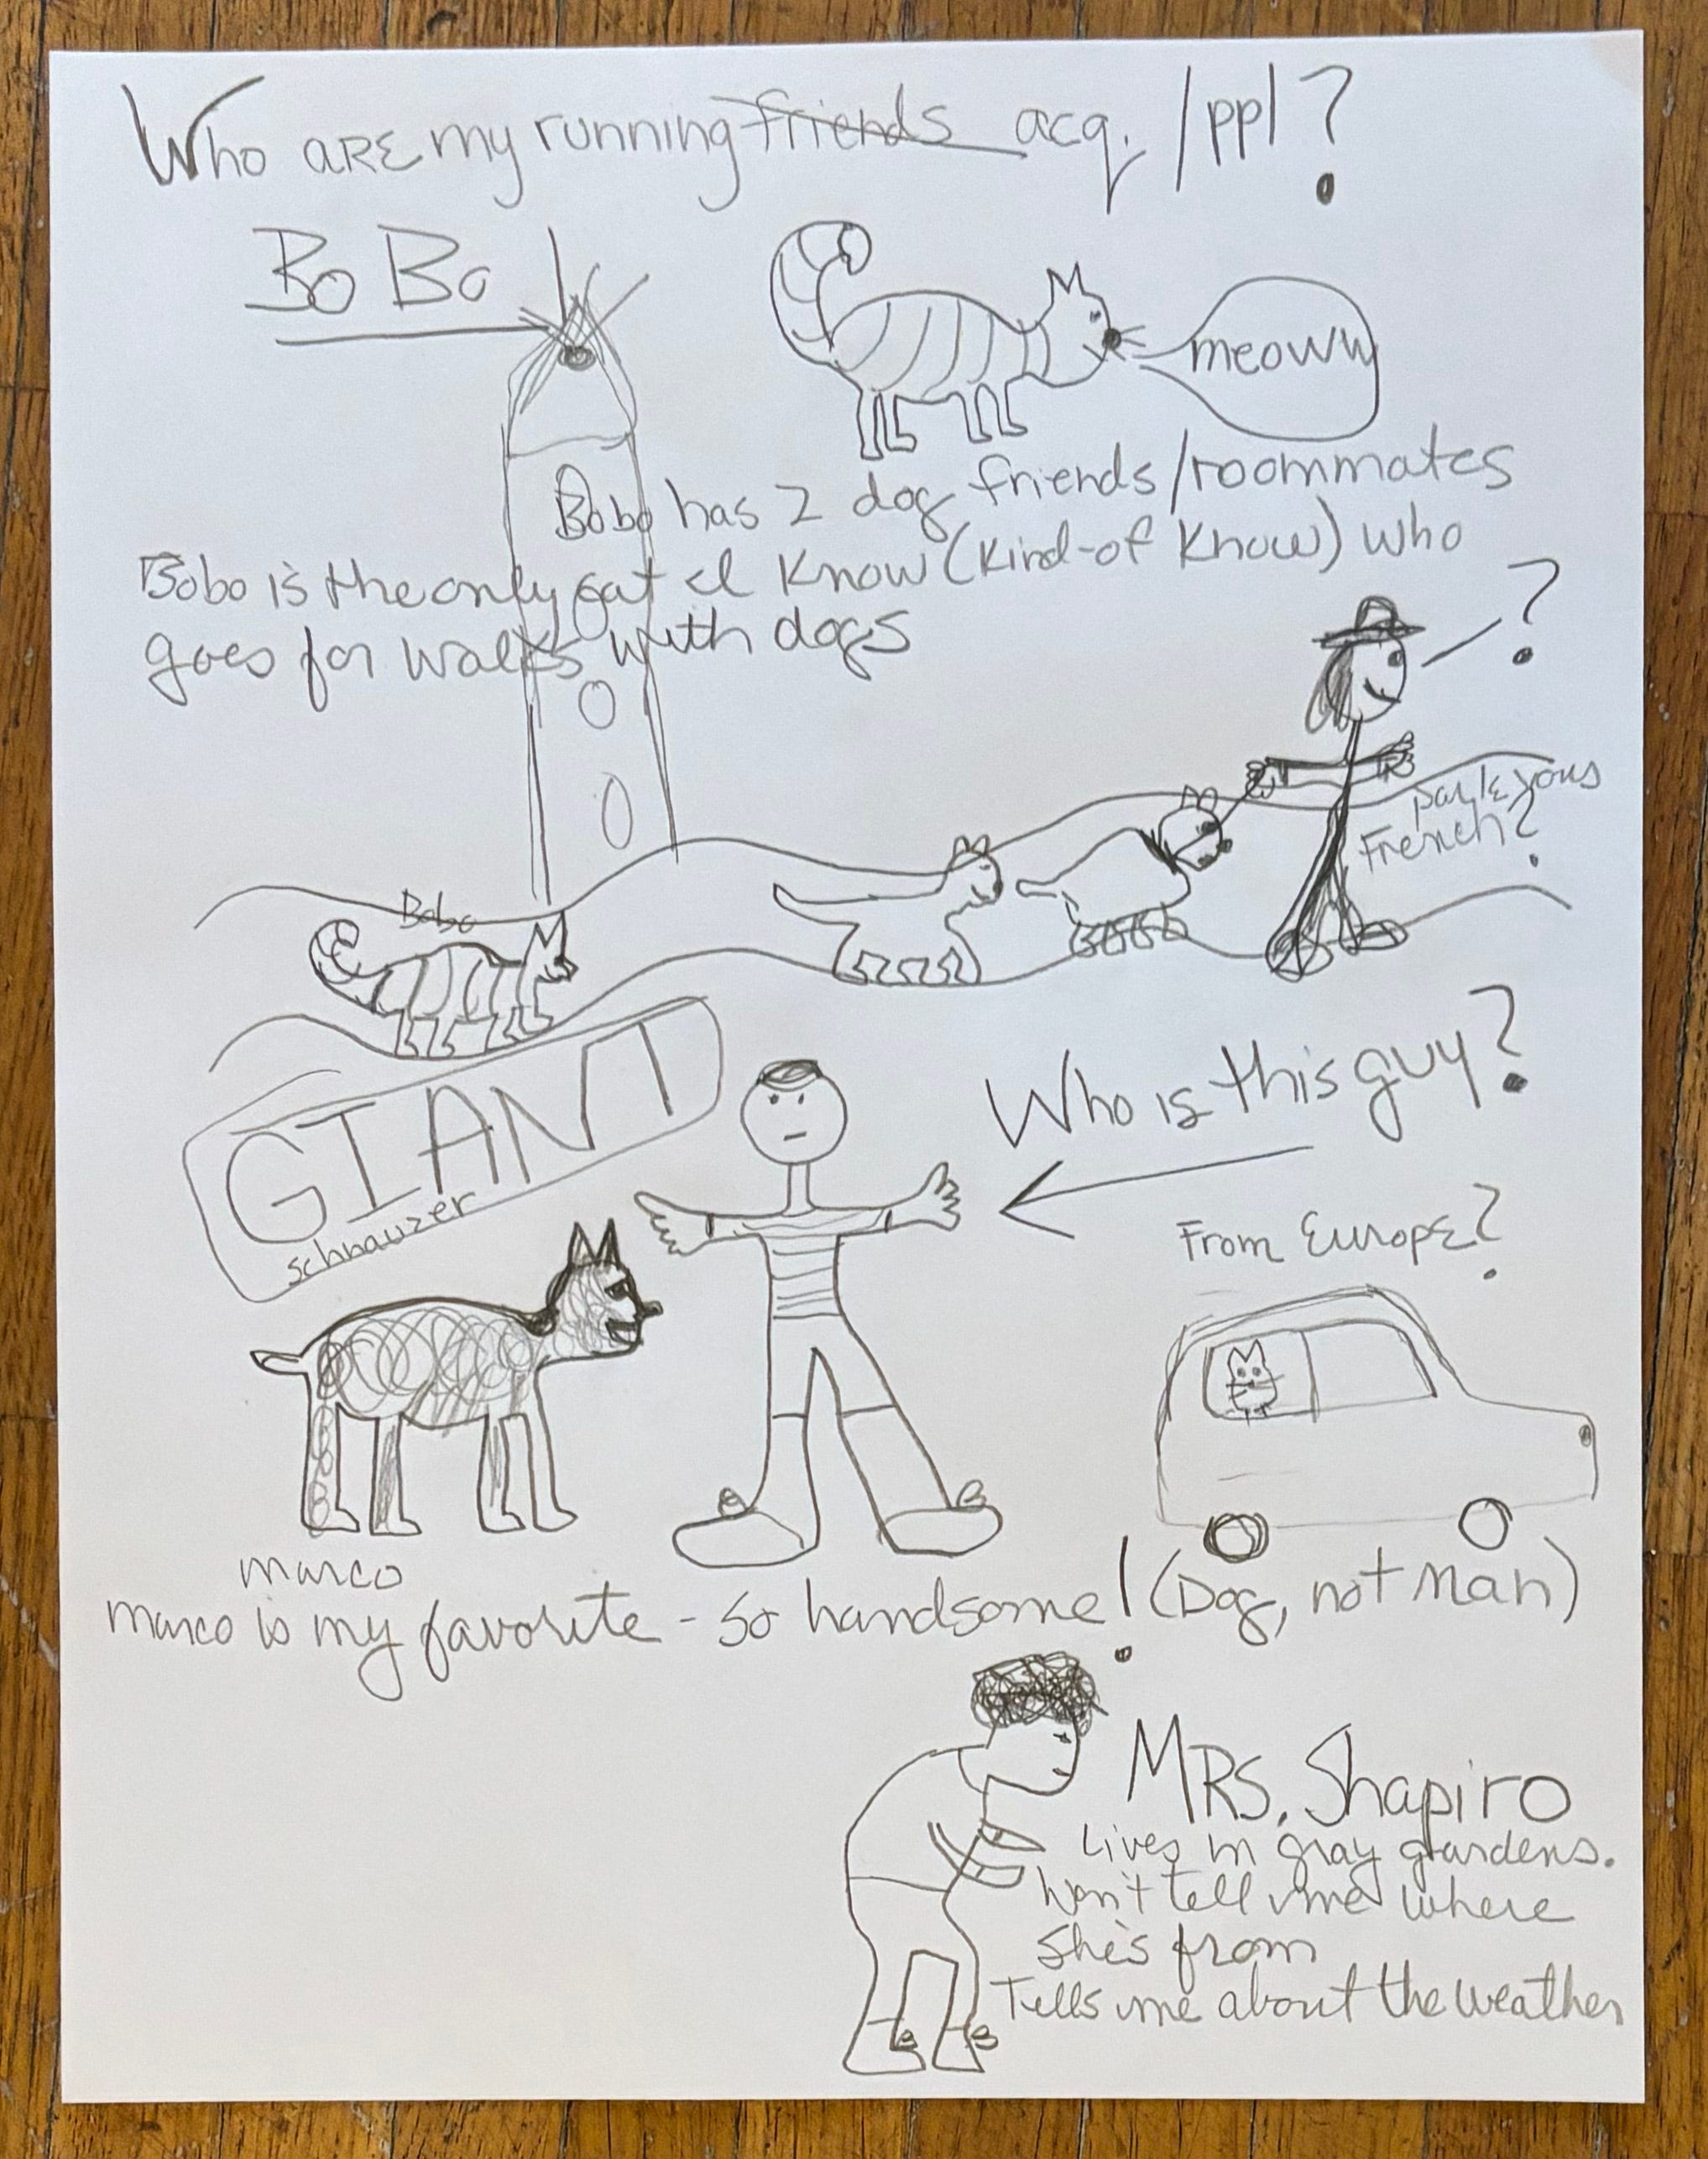 Who ARE my running friends acq. /ppl?
BoBo
meoww
Bobo has 2 dog friends/roommates
Bobo is the only cat I know (kind-of know) who
goes for walks with dogs
?
parle vous
French?
Bobo
GIANT
schnauzer
Who is this guy?
From Europe?
marco
marco is my favorite - so handsome! (Dog, not man)
MRS. Shapiro
Lives in gray gardens.
Won't tell me where
she's from
Tells me about the weather